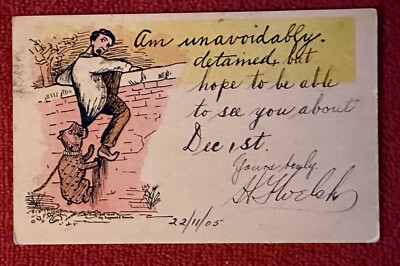 Am unavoidably
detained, but
hope to be able
to see you about
Dec 1st.
Yours truly
22/11/05